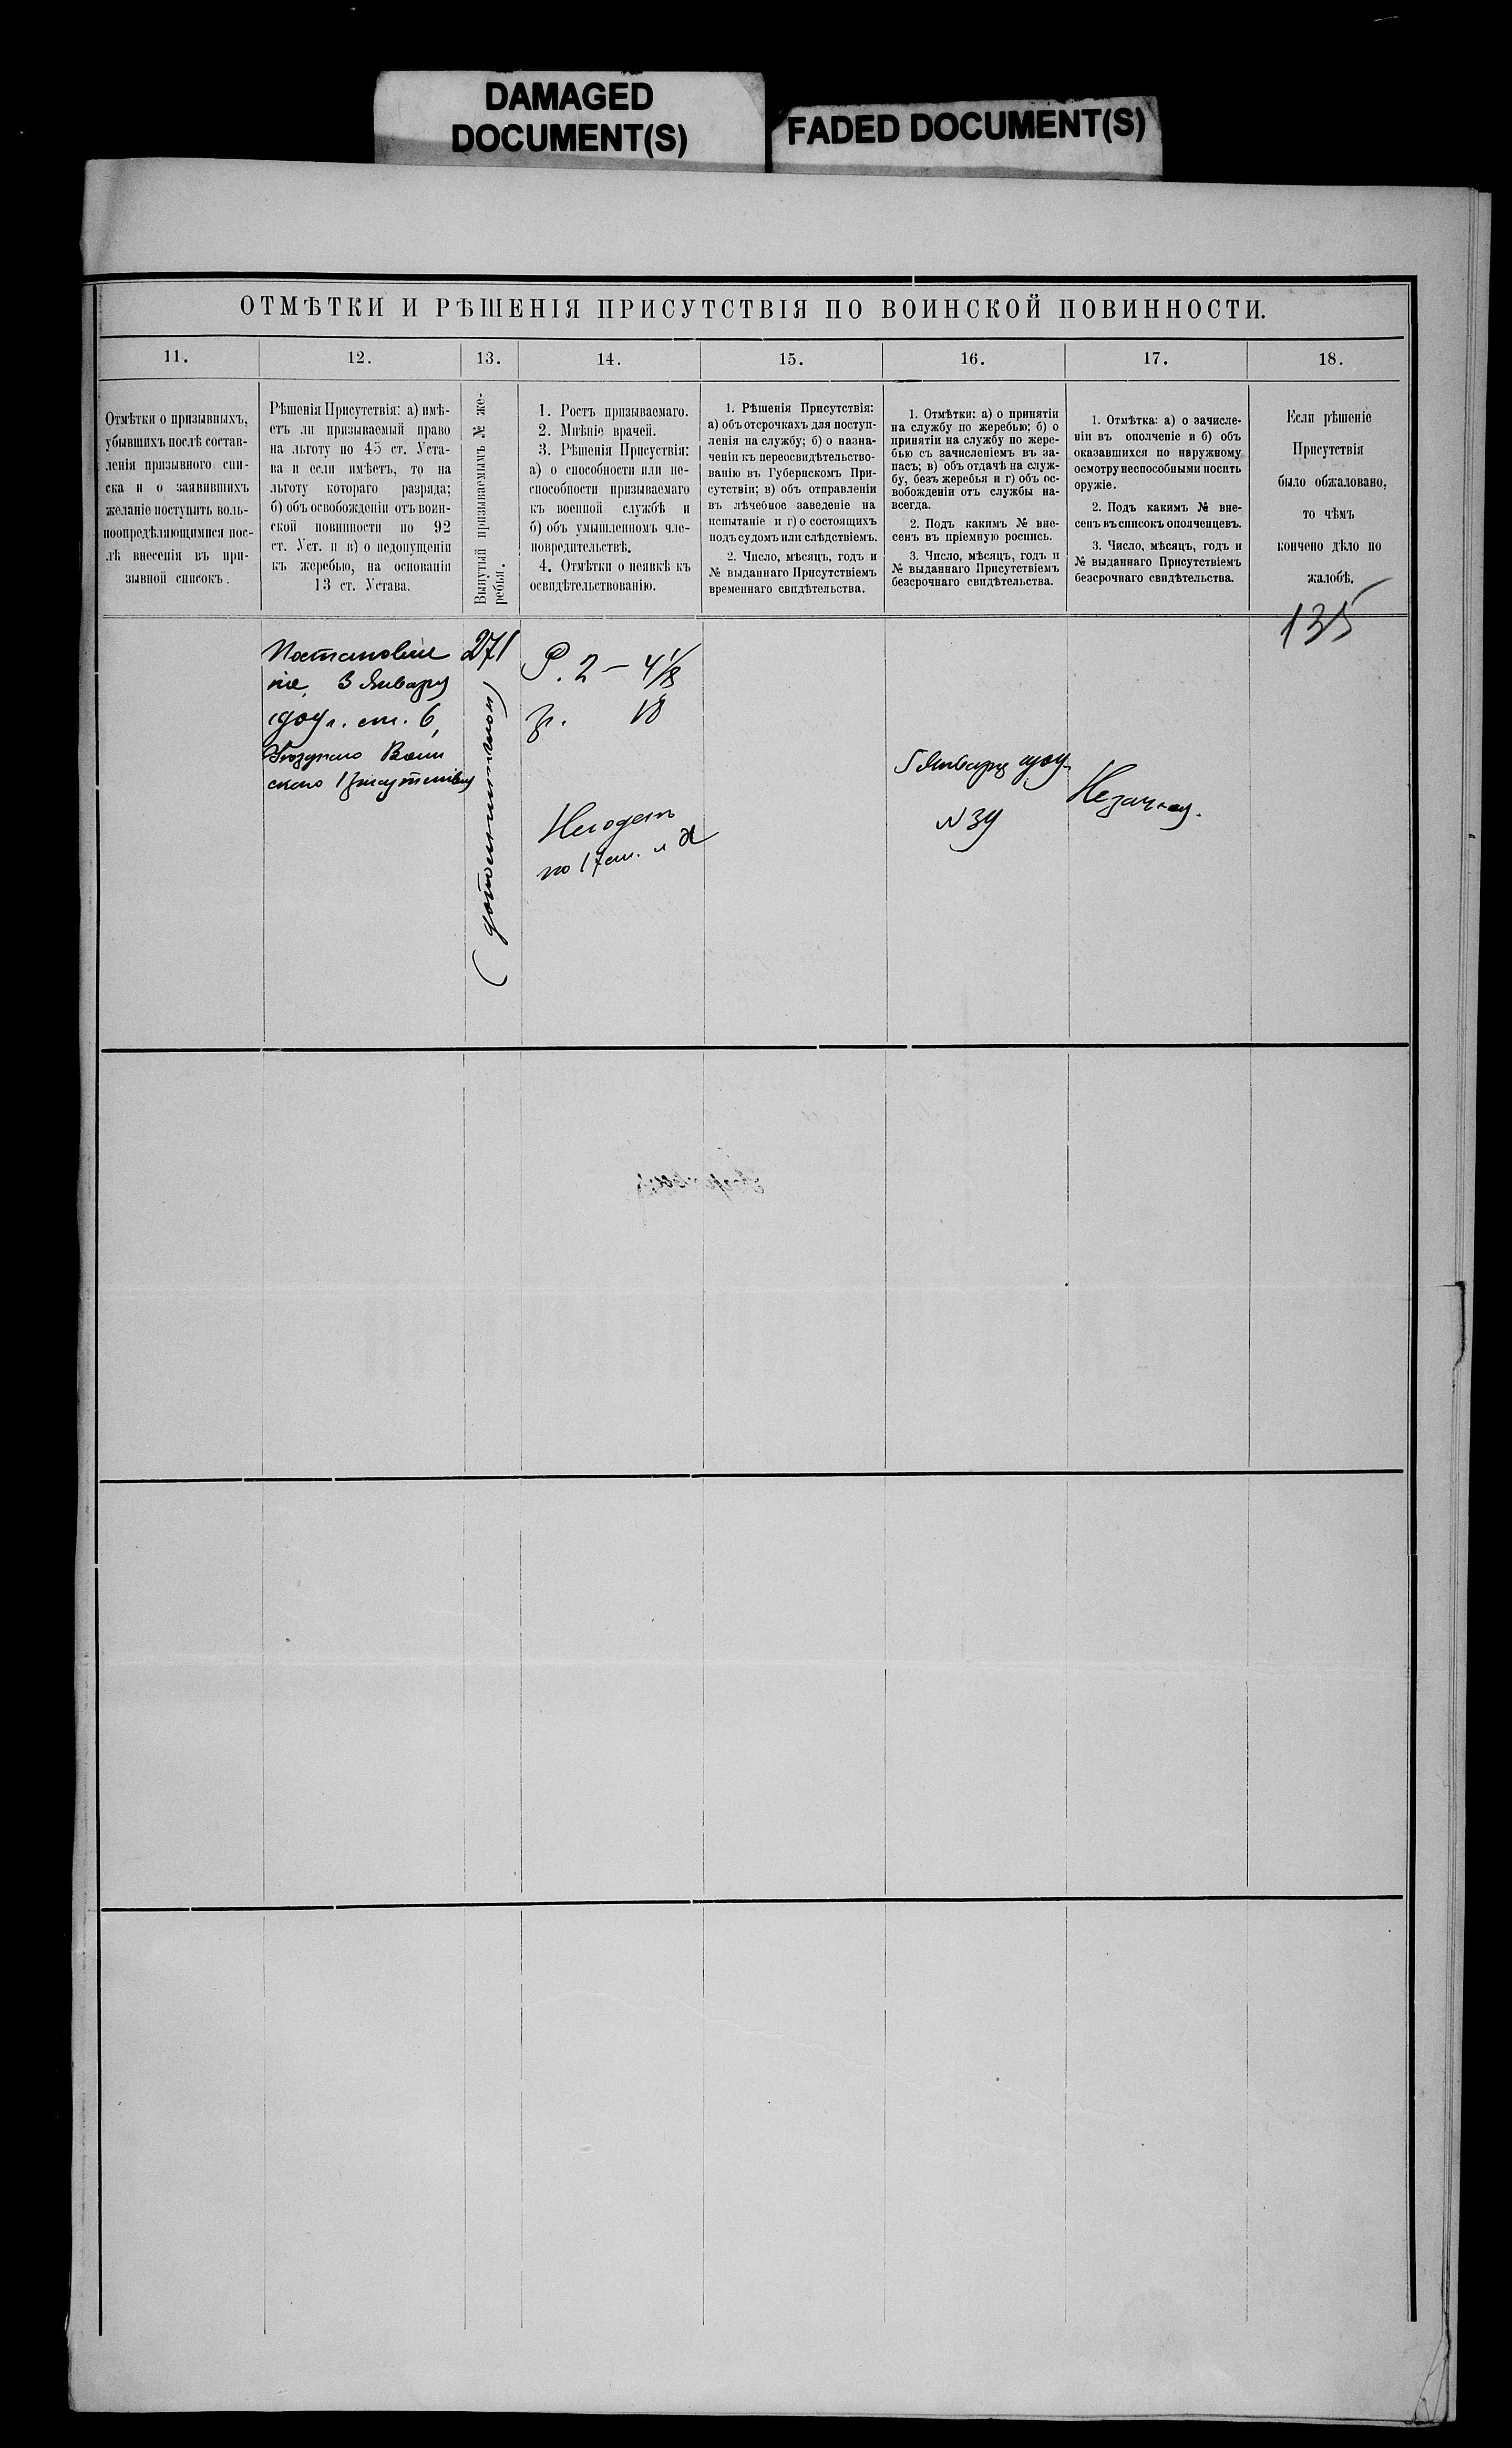 DAMAGED
DOCUMENT(S)
FADED DOCUMENT(S)
ОТМѢТКИ И РѢШЕНІЯ ПРИСУТСТВІЯ ПО ВОИНСКОЙ ПОВИННОСТИ.
11.
12.
13.
14.
15.
16.
17.
18.
Отмѣтки о призывныхъ,
убывшихъ послѣ состав-
ленія призывного спи-
ска и о заявившихъ
желаніе поступить воль-
ноопредѣляющимися пос-
лѣ внесенія въ при-
зывной списокъ.
Рѣшенія Присутствія: а) имѣ-
етъ ли призываемый право
на льготу по 45 ст. Уста-
ва и если имѣетъ, то на
льготу котораго разряда;
б) объ освобожденіи отъ воин-
ской повинности по 92
ст. Уст. и в) о недопущеніи
къ жеребью, на основаніи
13 ст. Устава.
Вынутый призываемымъ № же-
ребья.
1. Ростъ призываемаго.
2. Мнѣніе врачей.
3. Рѣшенія Присуствія:
а) о способности или не-
способности призываемаго
къ военной службѣ и
б) объ умышленномъ чле-
новредительствѣ.
4. Отмѣтки о неявкѣ къ
освидѣтельствованію.
1. Рѣшенія Присутствія:
а) объ отсрочкахъ для поступ-
ленія на службу; б) о назна-
ченіи къ переосвидѣтельство-
ванію въ Губернскомъ При-
сутствіи; в) объ отправленіи
въ лѣчебное заведеніе на
испытаніе и г) о состоящихъ
подъ судомъ или слѣдствіемъ.
2. Число, мѣсяцъ, годъ и
№ выданнаго Присутствіемъ
временнаго свидѣтельства.
1. Отмѣтки: а) о принятіи
на службу по жеребью; б) о
принятіи на службу по жере-
бью съ зачисленіемъ въ за-
пасъ; в) объ отдачѣ на служ-
бу, безъ жеребья и г) объ ос-
вобожденіи отъ службы на-
всегда.
2. Подъ какимъ № вне-
сенъ въ пріемную роспись.
3. Число, мѣсяцъ, годъ и
№ выданнаго Присутствіемъ
безсрочнаго свидѣтельства.
1. Отмѣтка: а) о зачисле-
ніи въ ополченіе и б) объ
оказавшихся по наружному
осмотру неспособными носить
оружіе.
2. Подъ какимъ № вне-
сенъ въ списокъ ополченцевъ.
3. Число, мѣсяцъ, годъ и
№ выданнаго Присутствіемъ
безсрочнаго свидѣтельства.
Если рѣшеніе
Присутствія
было обжаловано,
то чѣмъ
кончено дѣло по
жалобѣ.
135
Постановле
ніе 3 Января
1904 г. ст. 6
Уѣзднаго Воин
скаго Присутствія
271
(дополнительный)
Р. 2 – 4 1/8
гр. 18
Негоденъ
по 17 ст. л. А
5 Января 1904
№ 34